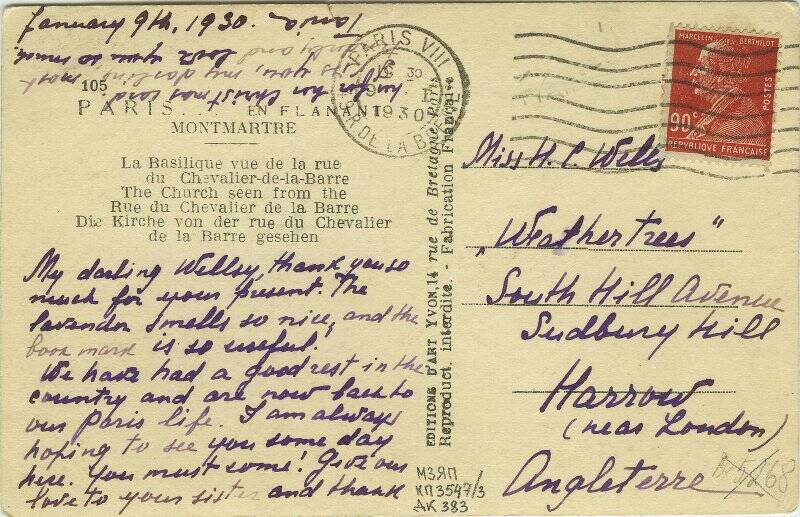 January 9th, 1930.
105
PARIS... EN FLANANT
MONTMARTRE
La Basilique vue de la rue
du Chevalier-de-la-Barre
The Church seen from the
Rue du Chevalier de la Barre
Die Kirche von der rue du Chevalier
de la Barre gesehen
My darling Wellsy, thank you so
much for your present. The
lavender smells so nice, and the
book mark is so useful.
We have had a good rest in the
country and are now back to
our Paris life. I am always
hoping to see you some day
here. You must come! Give our
love to your sister and thank
her for her Christmas card
to you, my darling most
and love you so much
Tania
EDITIONS D'ART YVON, 14 rue de Bretagne, Paris
Reproduct. interdite. - Fabrication Française
PARIS VIII
1930
MARCELIN BERTHELOT
POSTES
90c
REPUBLIQUE FRANÇAISE
Miss H. C. Wells
„Weathertrees"
South Hill Avenue
Sudbury Hill
Harrow
(near London)
Angleterre
МЗЯП
КП 3547/3
ДК 383